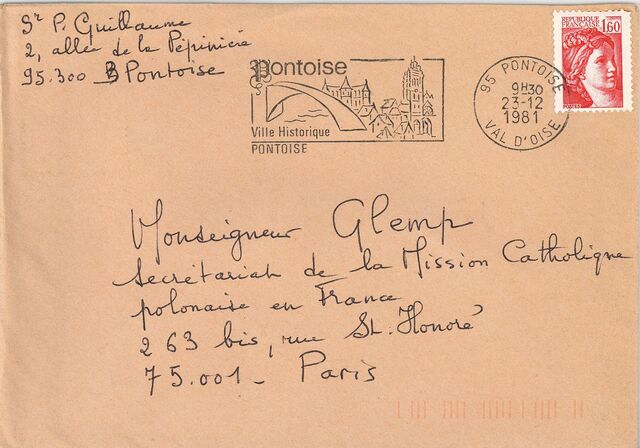 Sr P. Guillaume
2, allée de la Pépinière
95.300 Pontoise
pontoise
Ville Historique
PONTOISE
95 PONTOISE
9H30
23-12
1981
VAL D'OISE
REPUBLIQUE
FRANÇAISE 1,60
Monseigneur Glemp
Secrétariat de la Mission Catholique
polonaise en France
263 bis, rue St. Honoré
75.001 - Paris